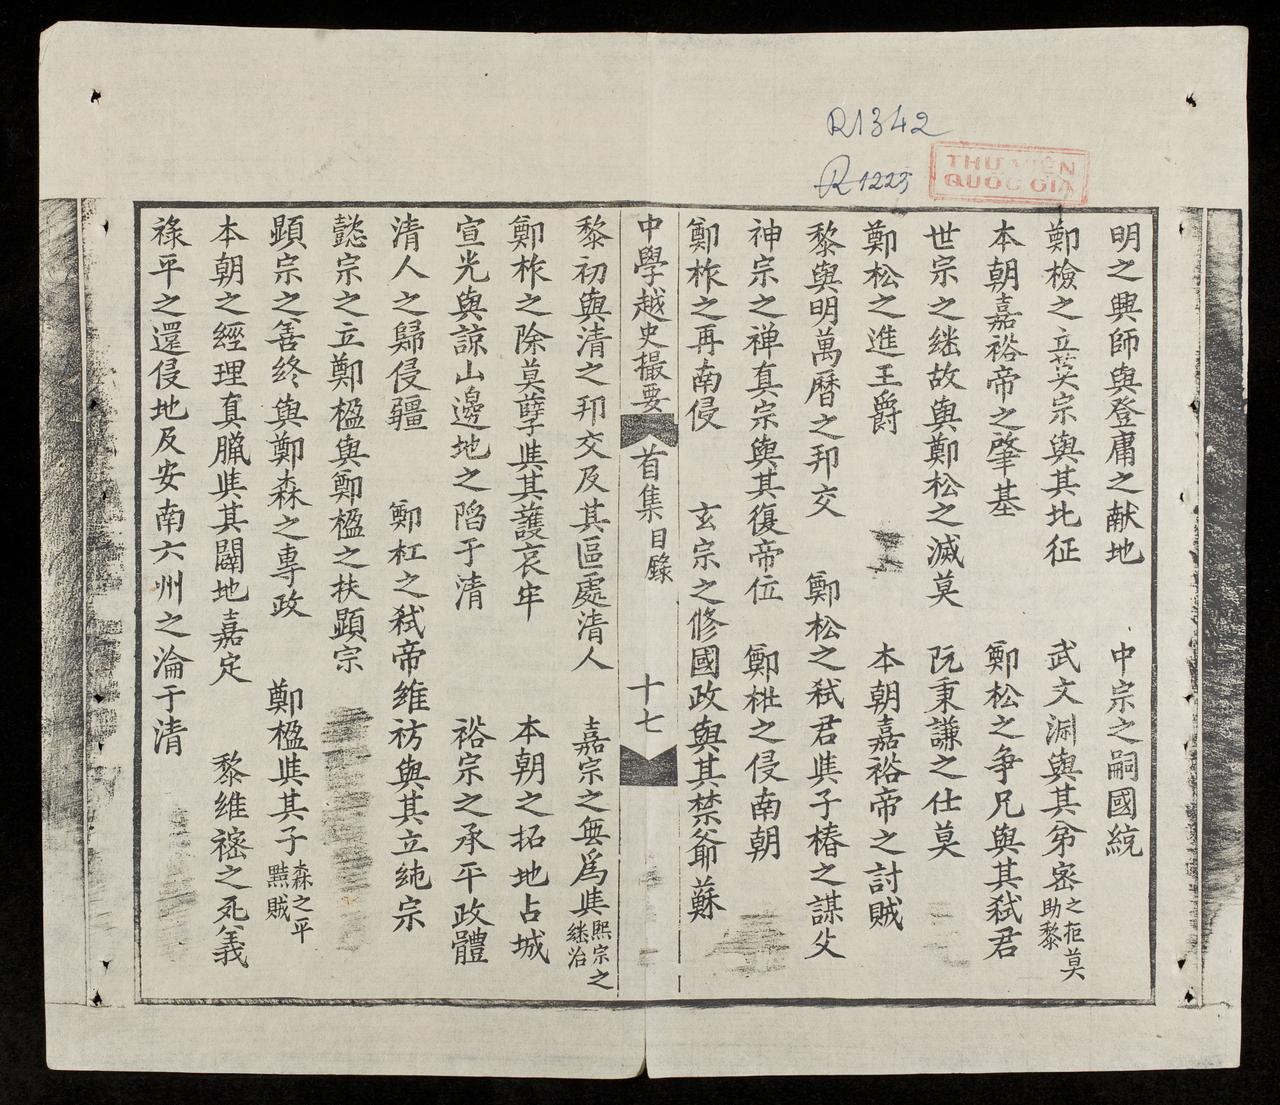 R1342
R1225
THƯ VIỆN
QUỐC GIA
明之興師與登庸之献地 中宗之嗣國統
鄭檢之立英宗與其北征 武文渊與其弟密之拒莫助黎
本朝嘉裕帝之肇基 鄭松之争兄與其弑君
世宗之継故與鄭松之滅莫 阮秉謙之仕莫
鄭松之進王爵 本朝嘉裕帝之討賊
黎與明萬曆之邦交 鄭松之弑君與其子椿之謀父
神宗之禅真宗與其復帝位 鄭梉之侵南朝
鄭柞之再南侵 玄宗之修國政與其禁爺蘇
中學越史撮要 首集目錄 十七
黎初與清之邦交及其區處清人 嘉宗之無爲與熙宗之継治
鄭柞之除莫孽與其護哀牢 本朝之拓地占城
宣光與諒山邊地之陷于清 裕宗之承平政體
清人之歸侵疆 鄭杠之弑帝維祊與其立純宗
懿宗之立鄭楹與鄭楹之扶顕宗
顕宗之善终與鄭森之專政 鄭楹與其子森之平黙賊
本朝之經理真臘與其闢地嘉定 黎維樒之死義
祿平之還侵地及安南六州之淪于清